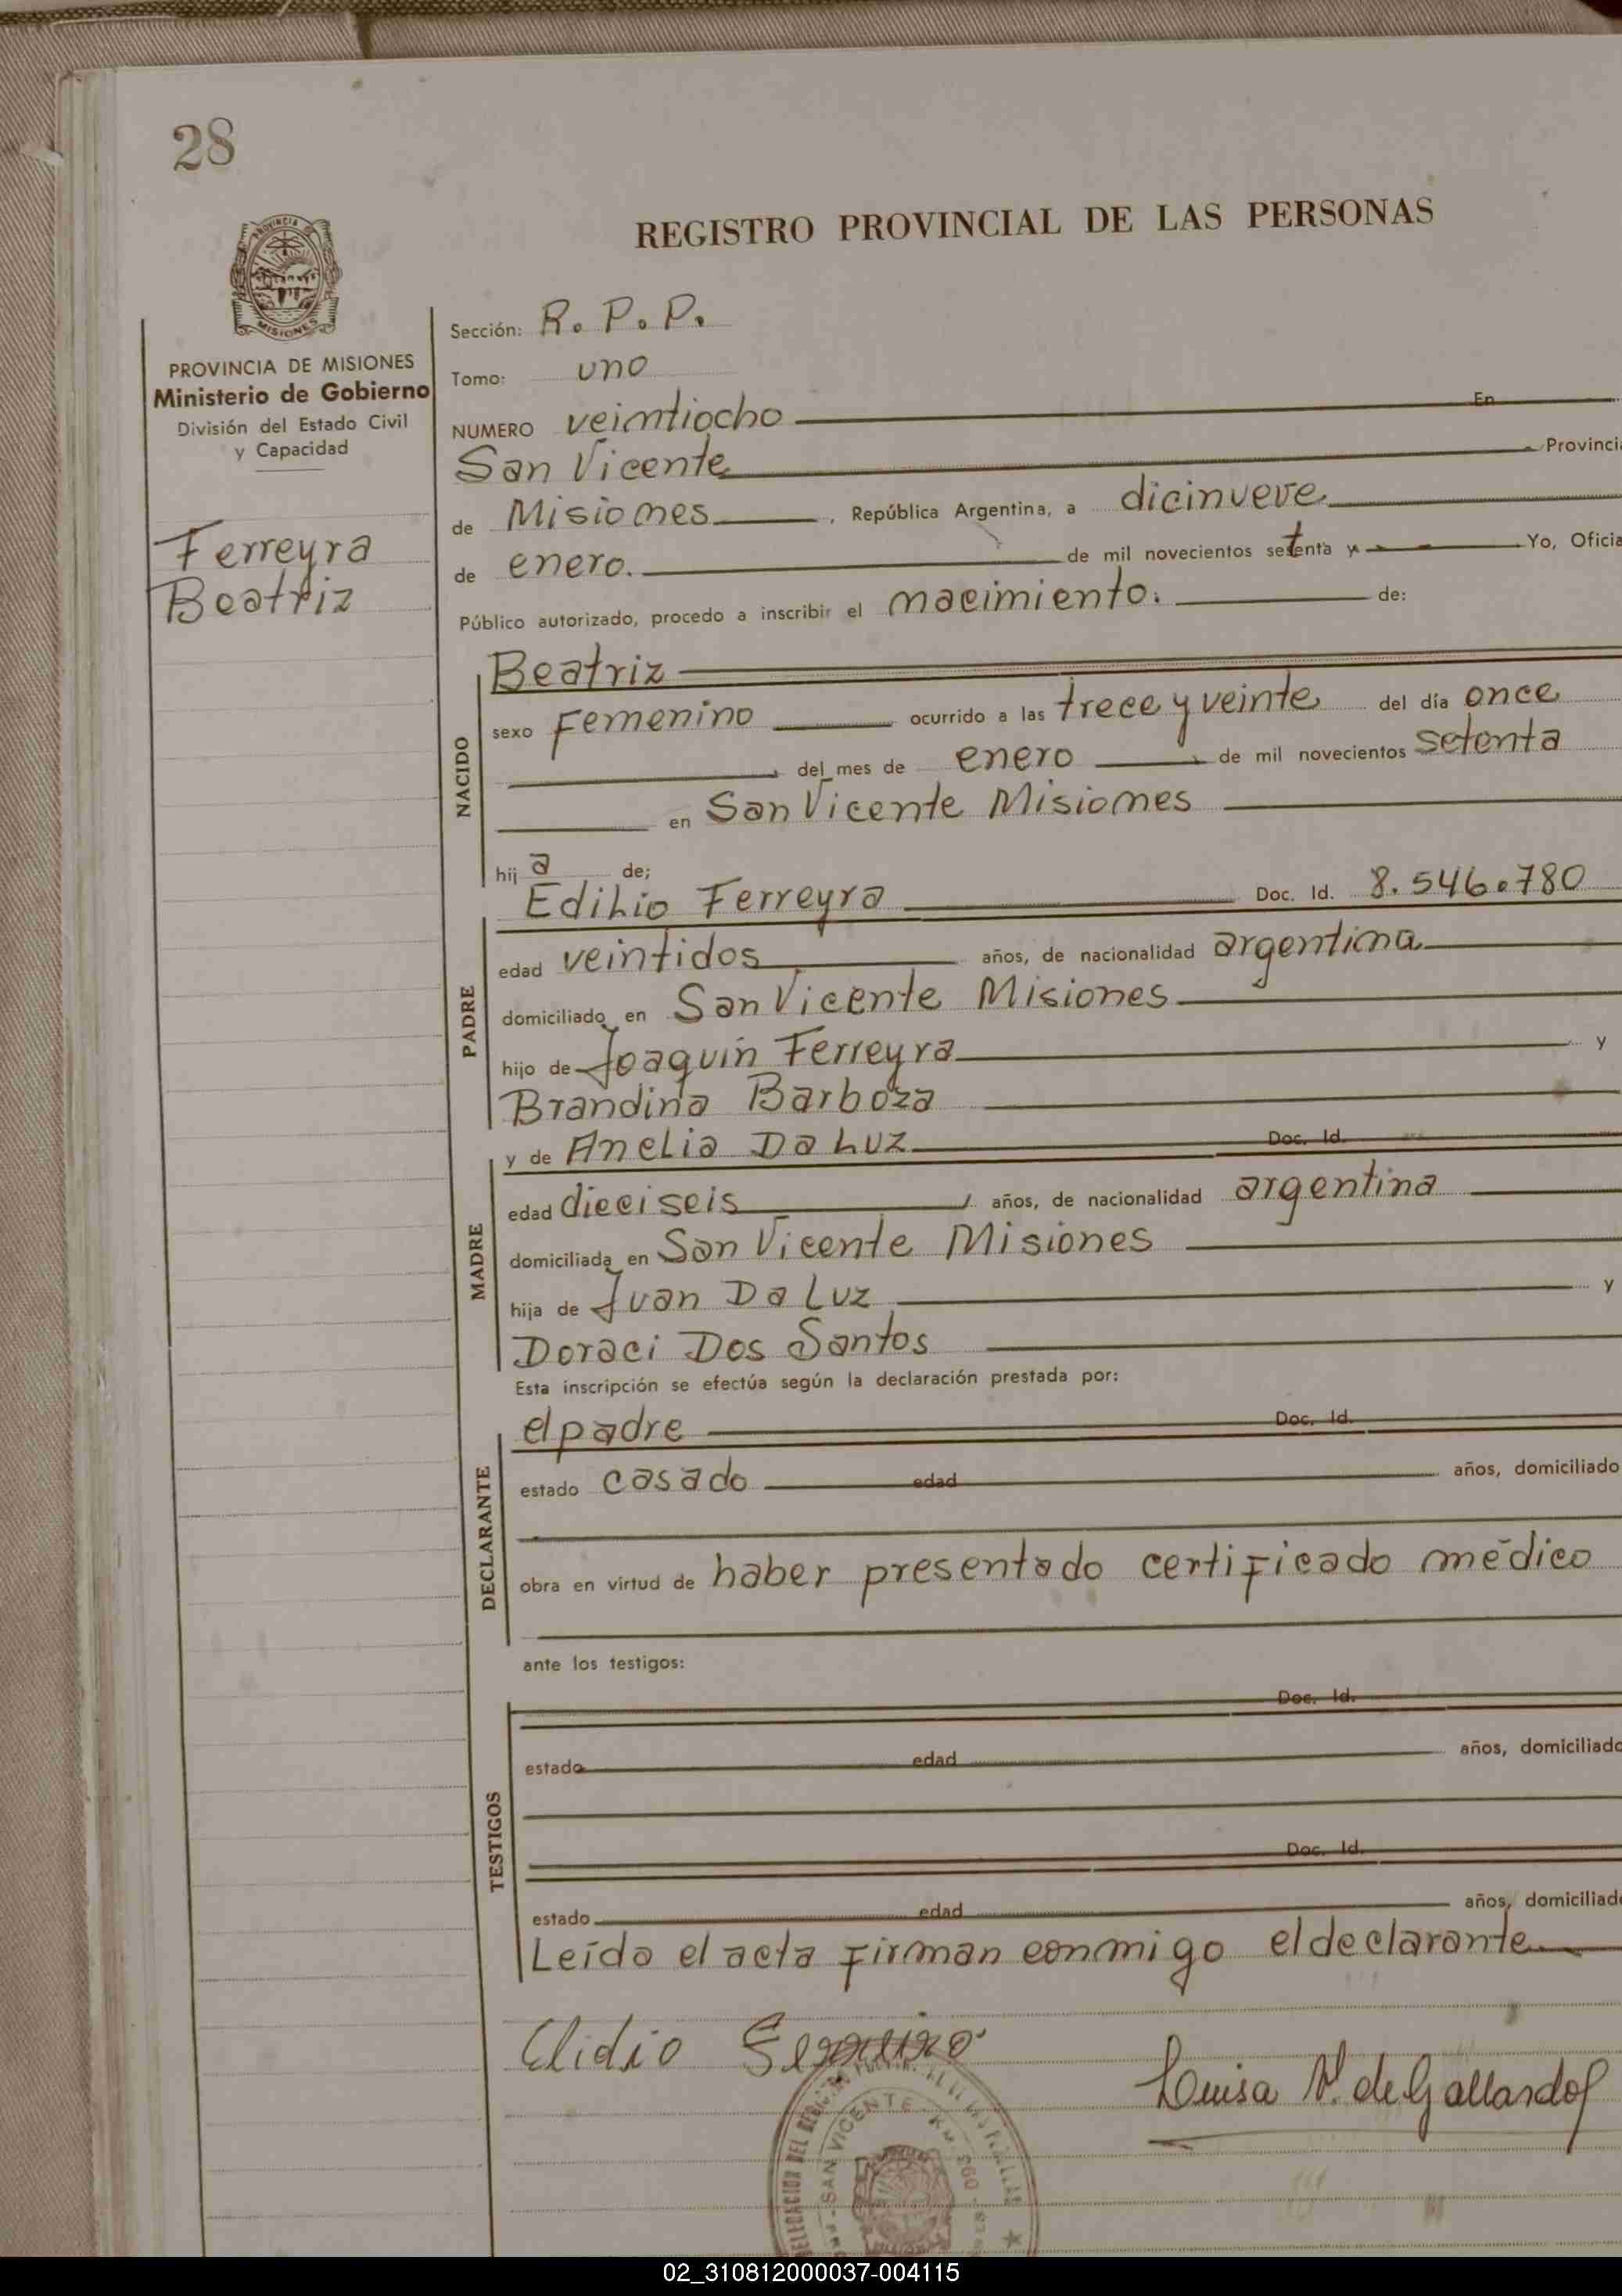 28
REGISTRO PROVINCIAL DE LAS PERSONAS
PROVINCIA DE
MISIONES
PROVINCIA DE MISIONES
Ministerio de Gobierno
División del Estado Civil
y Capacidad
Ferreyra
Beatriz
Sección: R. P. P.
Tomo: uno
NUMERO veintiocho En
San Vicente Provinci
de Misiones , República Argentina, a dicinueve
de enero. de mil novecientos setenta y Yo, Oficia
Público autorizado, procedo a inscribir el nacimiento. de:
NACIDO
Beatriz
sexo Femenino ocurrido a las trece y veinte del día once
del mes de enero de mil novecientos setenta
en San Vicente Misiones
hij a de;
PADRE
Edilio Ferreyra Doc. Id. 8.546.780
edad veintidos años, de nacionalidad argentina
domiciliado en San Vicente Misiones
hijo de Joaquin Ferreyra y
Brandina Barboza
MADRE
y de Anelia Da Luz Doc. Id.
edad dieciseis años, de nacionalidad argentina
domiciliada en San Vicente Misiones
hija de Juan Da Luz y
Doraci Dos Santos
Esta inscripción se efectúa según la declaración prestada por:
DECLARANTE
el padre Doc. Id.
estado casado edad años, domiciliado
obra en virtud de haber presentado certificado médico
ante los testigos:
TESTIGOS
Doc. Id.
estado edad años, domiciliado
Doc. Id.
estado edad años, domiciliad
Leído el acta firman conmigo el declarante
Elidio
Luisa V. de Gallardo
DELEGACION DEL
SAN VICENTE - KM.
02_310812000037-004115